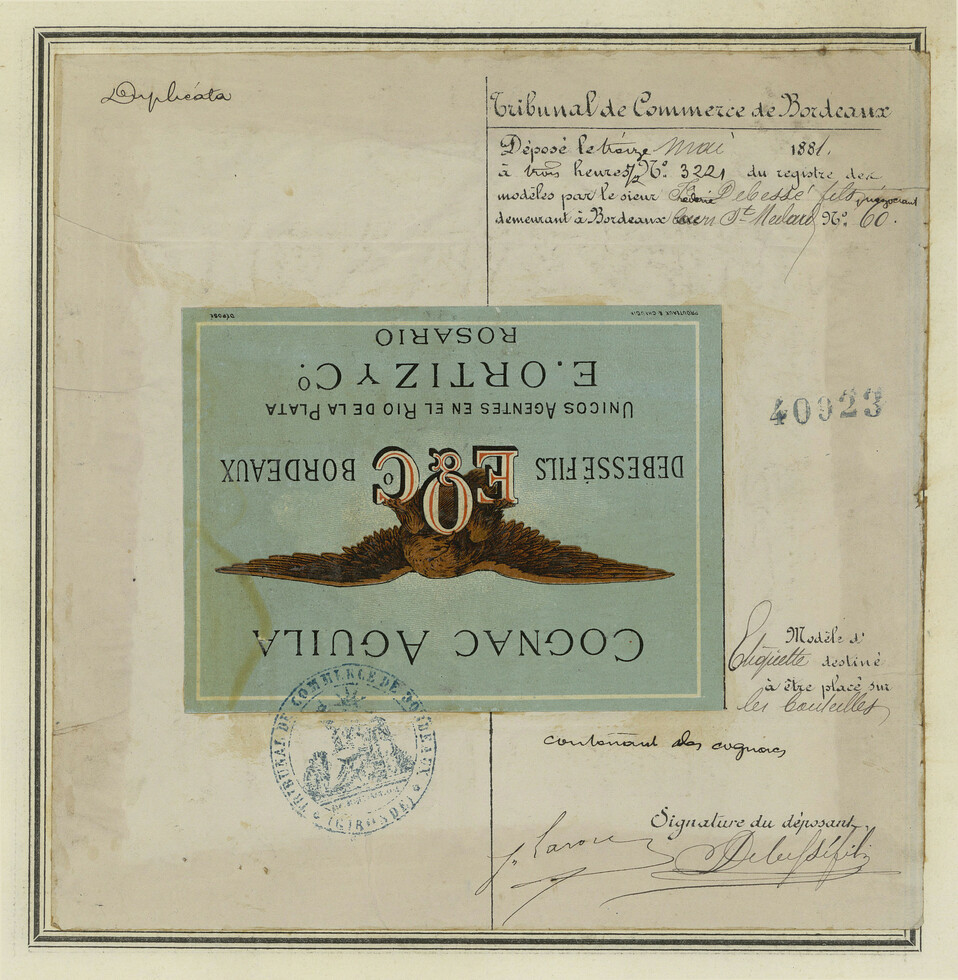 Duplicata
Tribunal de Commerce de Bordeaux
Déposé le treize mai 1881.
à trois heures 1/2 N° 3221 du registre des
modèles par le sieur Debessé fils négociant
demeurant à Bordeaux Cours St Médard N° 60.
40923
COGNAC AGUILA
DEBESSÉ FILS E&C° BORDEAUX
O
UNICOS AGENTES EN EL RIO DE LA PLATA
E. ORTIZ Y C°.
ROSARIO
DÉPOSÉ
Modèle d'
Etiquette destiné
à être placé sur
les bouteilles
contenant des cognacs
TRIBUNAL DE COMMERCE DE BORDEAUX
(GIRONDE)
Signature du déposant
Debessé fils